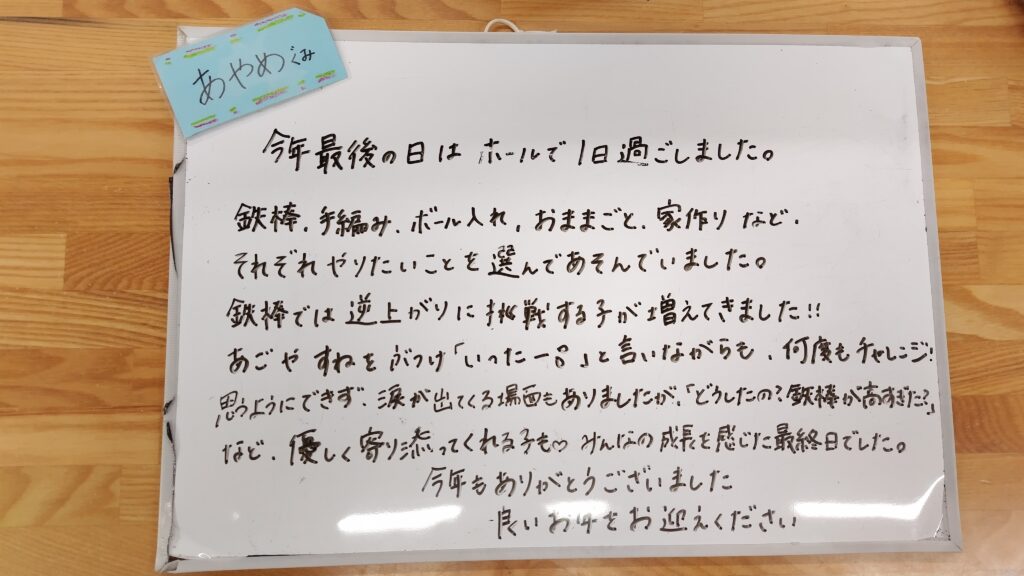 あやめぐみ
今年最後の日は ホールで 1日過ごしました。
鉄棒、手編み、ボール入れ、おままごと、家作り など、
それぞれやりたいことを選んであそんでいました。
鉄棒では 逆上がりに 挑戦する子が増えてきました!!
あごや すねを ぶつけ「いったー!」と言いながらも、何度もチャレンジ!
思うようにできず、涙が出てくる場面もありましたが、「どうしたの?鉄棒が高すぎた?」
など、優しく寄り添ってくれる子も♡ みんなの成長を感じた最終日でした。
今年もありがとうございました
良いお年をお迎えください